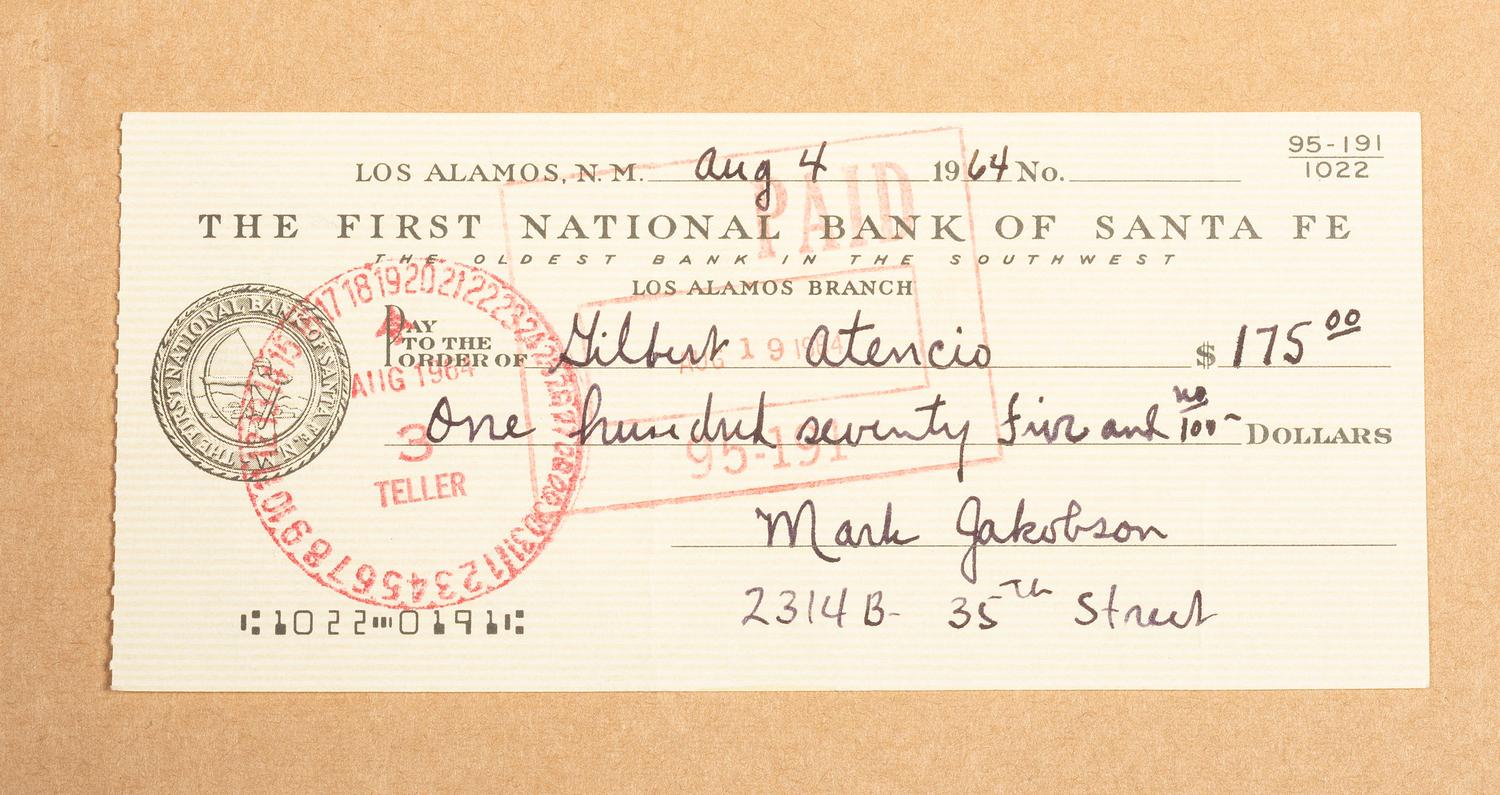 LOS ALAMOS, N. M. Aug 4 1964 No.
95-191
1022
THE FIRST NATIONAL BANK OF SANTA FE
THE OLDEST BANK IN THE SOUTHWEST
LOS ALAMOS BRANCH
PAY TO THE ORDER OF Gilbert Atencio $ 175 00
One hundred seventy Five and no/100 DOLLARS
Mark Jakobson
2314 B- 35th Street
⑆1022⑉0191⑆
THE FIRST NATIONAL BANK OF SANTA FE N.M.
PAID
AUG 19 1964
95-191
AUG 1964
3
TELLER
1 2 3 4 5 6 7 8 9 10 11 12 13 14 15 16 17 18 19 20 21 22 23 24 25 26 27 28 29 30 31